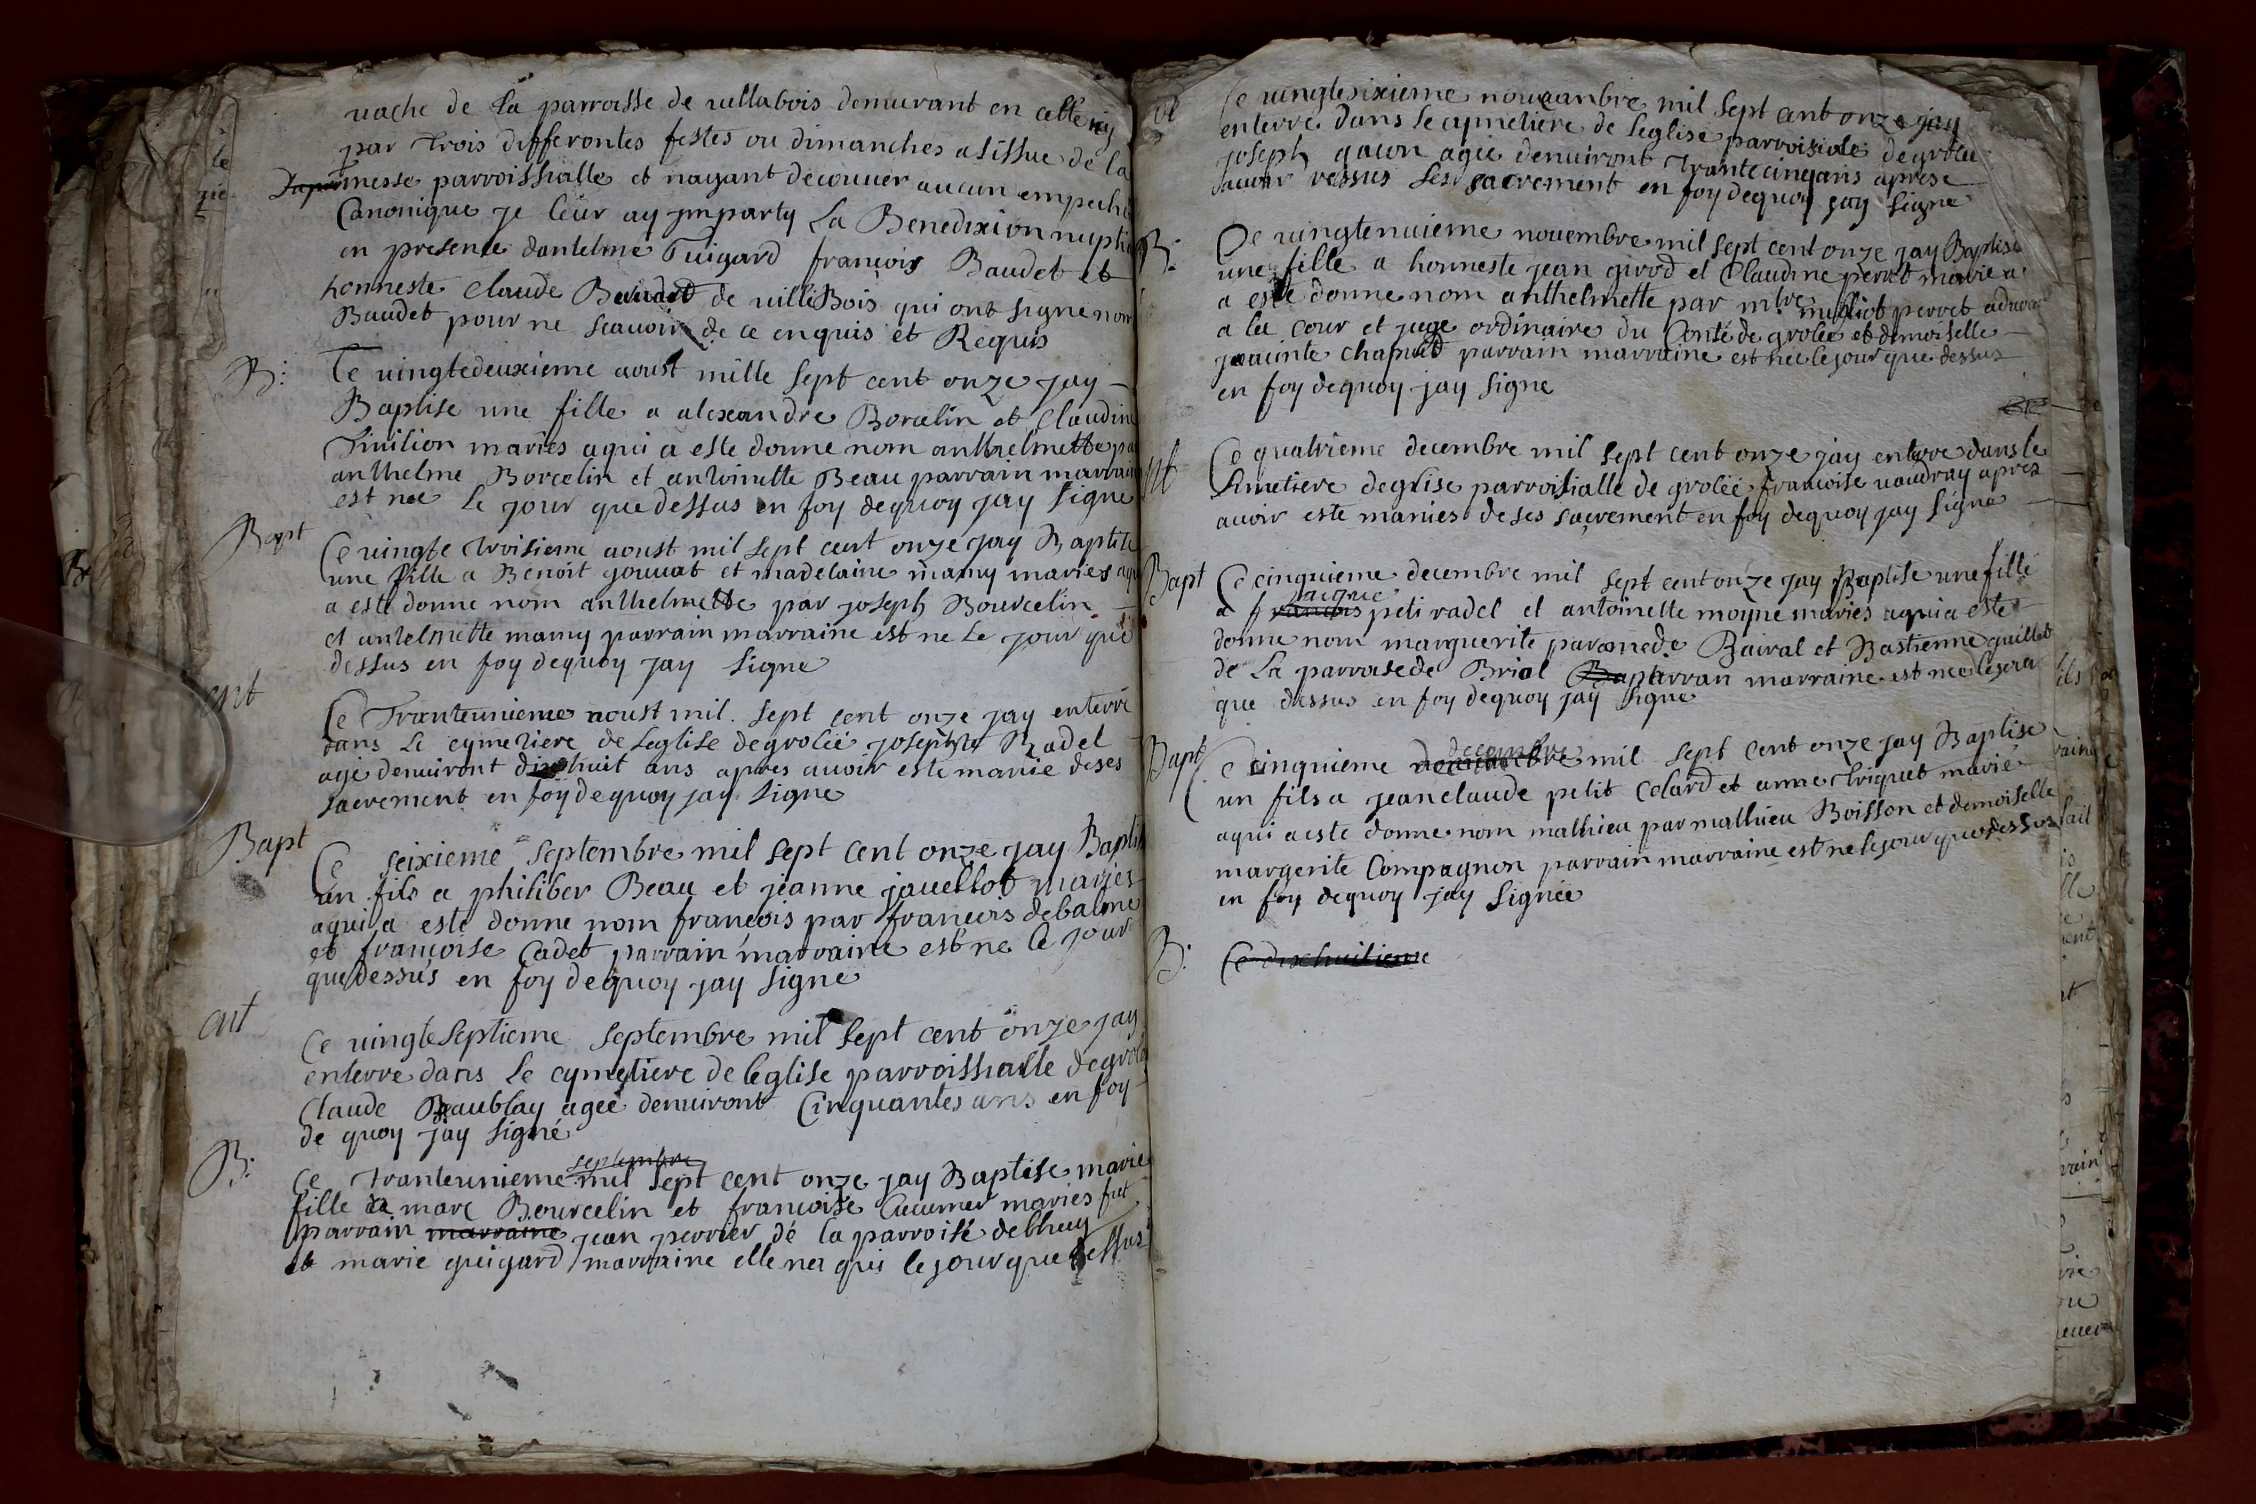 vache de la parroisse de villabois demeurant en cette
par trois differentes festes ou dimanches a lissue de la
messe parroissialle et nayant decouuer aucun empeche
Canonique je leur ay jmparty la Benedixion nuptia
en presence dantelme Guigard françois Baudet et
honneste Claude Baudet de ville Bois qui ont signe non
Baudet pour ne scauoir de ce enquis et Requis
B:
Ce vingtedeuxieme aoust mille sept cent onze jay
Baptise une fille a alexandre Borcelin et Claudine
maries aqui a este donne nom anthelmette par
anthelme Borcelin et antoinette Beau parrain marraine
est nee le jour que dessus en foy dequoy jay signe
Bapt
Ce vingte troisieme aoust mil sept cent onze jay Baptise
une fille a Benoit gouuat et madelaine mamy maries aqui
a este donne nom anthelmette par joseph Bourcelin
et antelmette mamy parrain marraine est ne le jour que
dessus en foy dequoy jay signe
ent
Ce Tranteunieme aoust mil sept cent onze jay enterré
dans le cymetiere de leglise degrolée josephte Radel
agé denuiront dixhuit ans apres auoir este manie deses
sacrement en foy dequoy jay signe
Bapt
Ce seixieme septembre mil sept cent onze jay Baptise
un fils a philiber Beau et jeanne jauellot mariés
aqui a esté donne nom françois par françois debalme
et françoise Cadet parrain marraine est ne le jour
que dessus en foy dequoy jay signe
ent
Ce vingteseptieme septembre mil sept cent onze jay
enterre dans le cymetiere de leglise parroissialle degrolé
Claude Beaublay ageé denuiront Cinquantes ans en foy
de quoy jay signé
B:
septembre
Ce tranteunieme mil sept cent onze jay Baptise marie
fille a marc Bourcelin et françoise Cucumer maries fut
parrain marraine jean perrier dé la parroisé delhuy
et marie guigard marraine elle na qui le jour que dessus
Ce vingtesixieme nouuanbre mil sept cent onze jay
enterre dans le cymetiere de leglise parroisiale degrolée
joseph gacon agée denuiront trantecinqans aprese
auoir ressus ses sacrement en foy dequoy jay signe
B:
Ce vingtenuieme nouembre mil sept cent onze jay Baptise
une fille a honneste jean girod et Claudine perret marie a
a este donne nom anthelmette par mtre perret aduocat
a la cour et juge ordinaire du Conté de grolée et demoiselle
jacinte chapuit parrain marraine est née le jour que dessus
en foy dequoy jay signe
Ce quatrieme decembre mil sept cent onze jay enterre dans le
simetiere deglise parroisialle de groléé françoise vaudray aprez
auoir este maniés de ses sacrement en foy dequoy jay signe
Bapt
Ce cinquieme decembre mil sept cent onze jay Baptise une fille
a françois peti radel et antoinette moyne maries aqui a este
donne nom marguerite par amede Bairal et Bastienne guillet
de la parroise de Briol parrain marraine est nee le jour
que dessus en foy dequoy jay signe
Bapt
decembre
Ce cinquieme mil sept cent onze jay Baptise
un fils a jeanclaude petit Colard et anne triquet marié
aqui a este donne nom mathieu par mathieu Boisson et demoiselle
margerite Compagnon parrain marraine est ne le jour que dessus
en foy dequoy jay signée
B:
Ce dixhuitieme